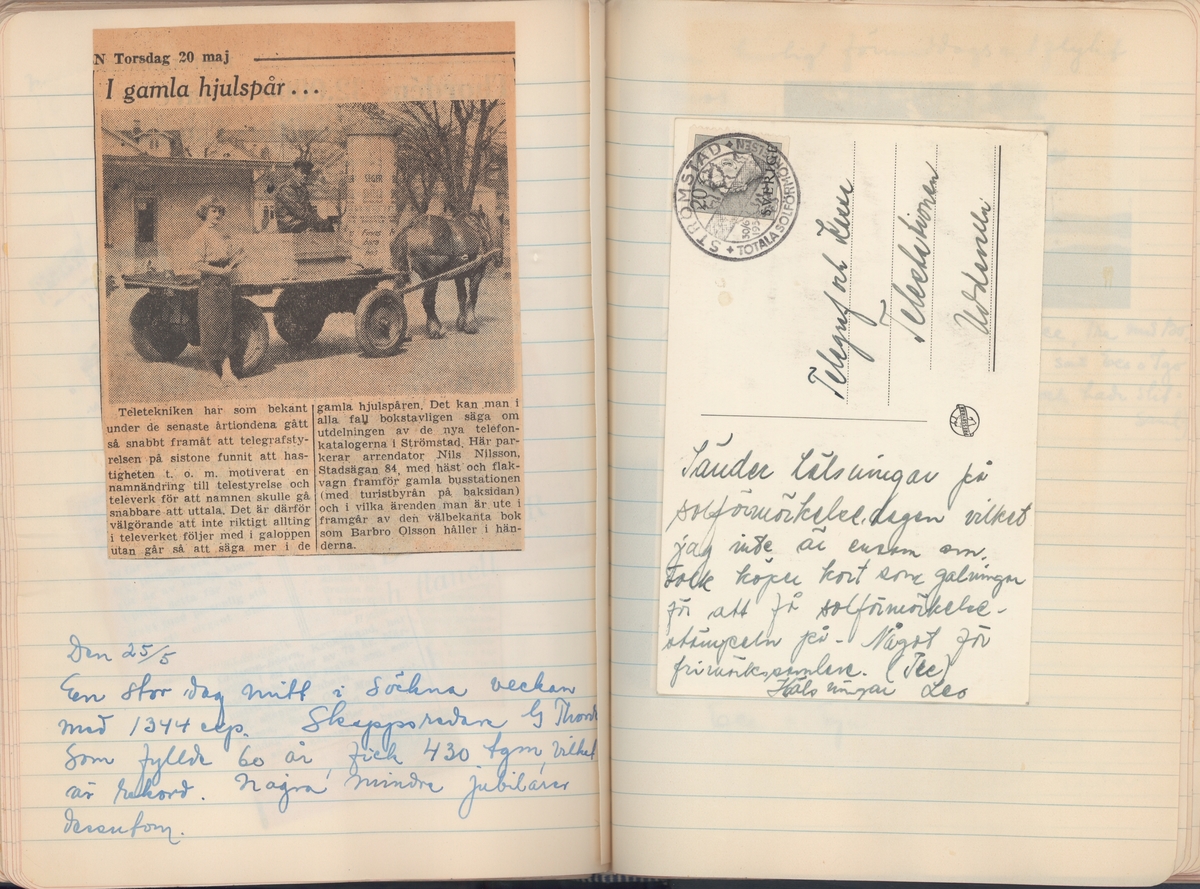 N Torsdag 20 maj
I gamla hjulspår...
SEGER
Finns
Teletekniken har som bekant
under de senaste årtiondena gått
så snabbt framåt att telegrafsty-
relsen på sistone funnit att has-
tigheten t. o. m. motiverat en
namnändring till telestyrelse och
televerk för att namnen skulle gå
snabbare att uttala. Det är därför
välgörande att inte riktigt allting
i televerket följer med i galoppen
utan går så att säga mer i de
gamla hjulspåren. Det kan man i
alla fall bokstavligen säga om
utdelningen av de nya telefon-
katalogerna i Strömstad. Här par-
kerar arrendator Nils Nilsson,
Stadsägan 84, med häst och flak-
vagn framför gamla busstationen
(med turistbyrån på baksidan)
och i vilka ärenden man är ute i
framgår av den välbekanta bok
som Barbro Olsson håller i hän-
derna.
Den 25/5
En stor dag mitt i Söckna veckan
med 1344 exp. Skeppsredare G Thord
som fyllde 60 år, fick 430 tgm, vilket
är rekord. Några mindre jubilarer
dessutom.
STRÖMSTAD
TOTALA SOLFÖRRÖ
SVERIGE
Telegraf och
Telestationen
Uddevalla
Sänder hälsningar på
solförmörkelsedagen vilket
jag inte är ensam om.
Folk köper kort som galningar
för att få solförmörkelse-
stämpeln på. Något för
frimärkssamlare. (Tee)
Hälsningar Leo